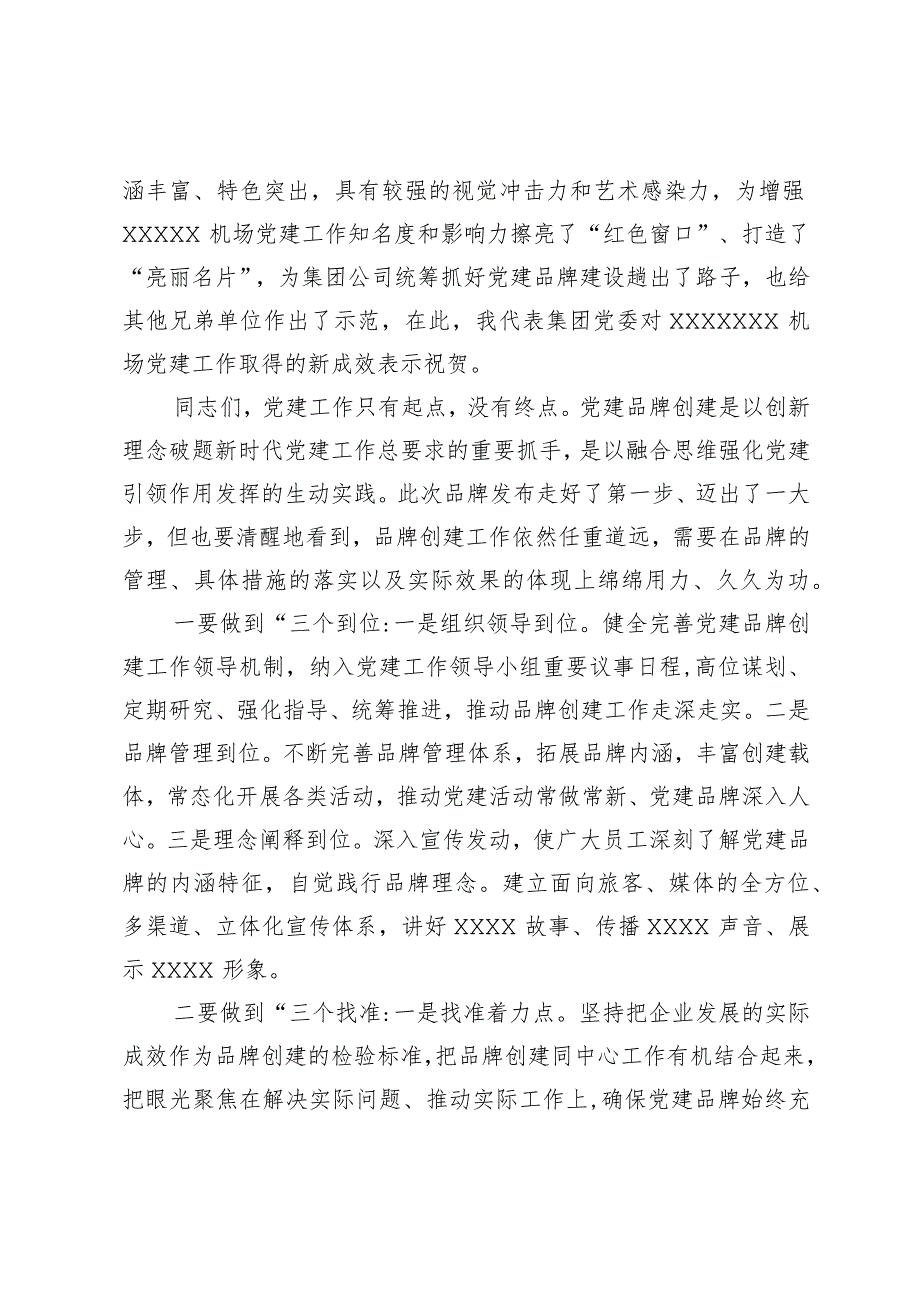 涵丰富、特色突出，具有较强的视觉冲击力和艺术感染力，为增强
XXXXX 机场党建工作知名度和影响力擦亮了“红色窗口”、打造了
“亮丽名片”，为集团公司统筹抓好党建品牌建设趟出了路子，也给
其他兄弟单位作出了示范，在此，我代表集团党委对 XXXXXXX 机
场党建工作取得的新成效表示祝贺。
同志们，党建工作只有起点，没有终点。党建品牌创建是以创新
理念破题新时代党建工作总要求的重要抓手，是以融合思维强化党建
引领作用发挥的生动实践。此次品牌发布走好了第一步、迈出了一大
步，但也要清醒地看到，品牌创建工作依然任重道远，需要在品牌的
管理、具体措施的落实以及实际效果的体现上绵绵用力、久久为功。
一要做到“三个到位:一是组织领导到位。健全完善党建品牌创
建工作领导机制，纳入党建工作领导小组重要议事日程,高位谋划、
定期研究、强化指导、统筹推进，推动品牌创建工作走深走实。二是
品牌管理到位。不断完善品牌管理体系，拓展品牌内涵，丰富创建载
体，常态化开展各类活动，推动党建活动常做常新、党建品牌深入人
心。三是理念阐释到位。深入宣传发动，使广大员工深刻了解党建品
牌的内涵特征，自觉践行品牌理念。建立面向旅客、媒体的全方位、
多渠道、立体化宣传体系，讲好 XXXX 故事、传播 XXXX 声音、展
示 XXXX 形象。
二要做到“三个找准:一是找准着力点。坚持把企业发展的实际
成效作为品牌创建的检验标准,把品牌创建同中心工作有机结合起来，
把眼光聚焦在解决实际问题、推动实际工作上,确保党建品牌始终充